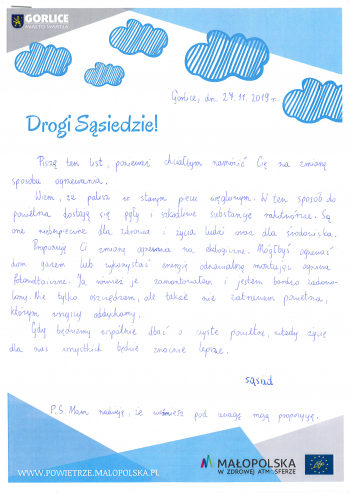 GORLICE
MIASTO ŚWIATŁA
Gorlice, dn. 24.11.2019 r.
Drogi Sąsiedzie!
Piszę ten list, ponieważ chciałbym namówić Cię na zmianę
sposobu ogrzewania.
Wiem, że palisz w starym piecu węglowym. W ten sposób do
powietrza dostają się pyły i szkodliwe substancje rakotwórcze. Są
one niebezpieczne dla zdrowia i życia ludzi oraz dla środowiska.
Proponuję Ci zmianę ogrzewania na ekologiczne. Mógłbyś ogrzewać
dom gazem lub wykorzystać energię odnawialną montując ogniwa
fotowoltaiczne. Ja również je zamontowałem i jestem bardzo zadowo-
lony. Nie tylko oszczędzam, ale także nie zatruwam powietrza,
którym wszyscy oddychamy.
Gdy będziemy wspólnie dbać o czyste powietrze, wtedy życie
dla nas wszystkich będzie znacznie lepsze.
sąsiad
P.S. Mam nadzieję, że weźmiesz pod uwagę moją propozycję.
WWW.POWIETRZE.MALOPOLSKA.PL
MAŁOPOLSKA
W ZDROWEJ ATMOSFERZE